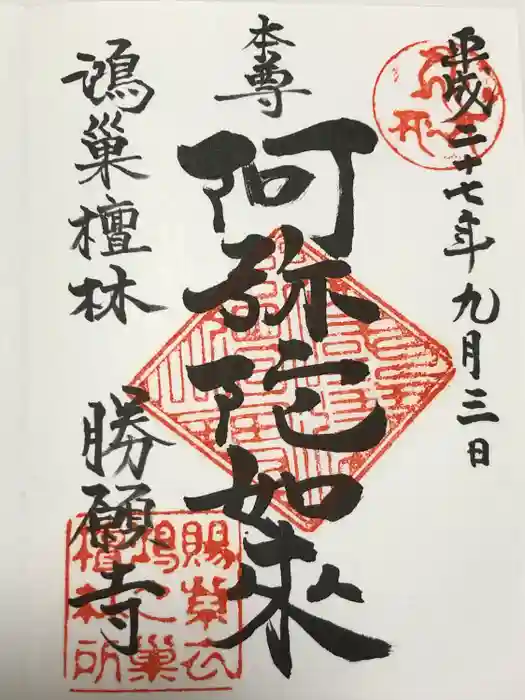 平成二十七年九月三日
本尊
阿弥陀如来
鴻巣檀林
勝願寺
賜紫衣
鴻巣
檀林所